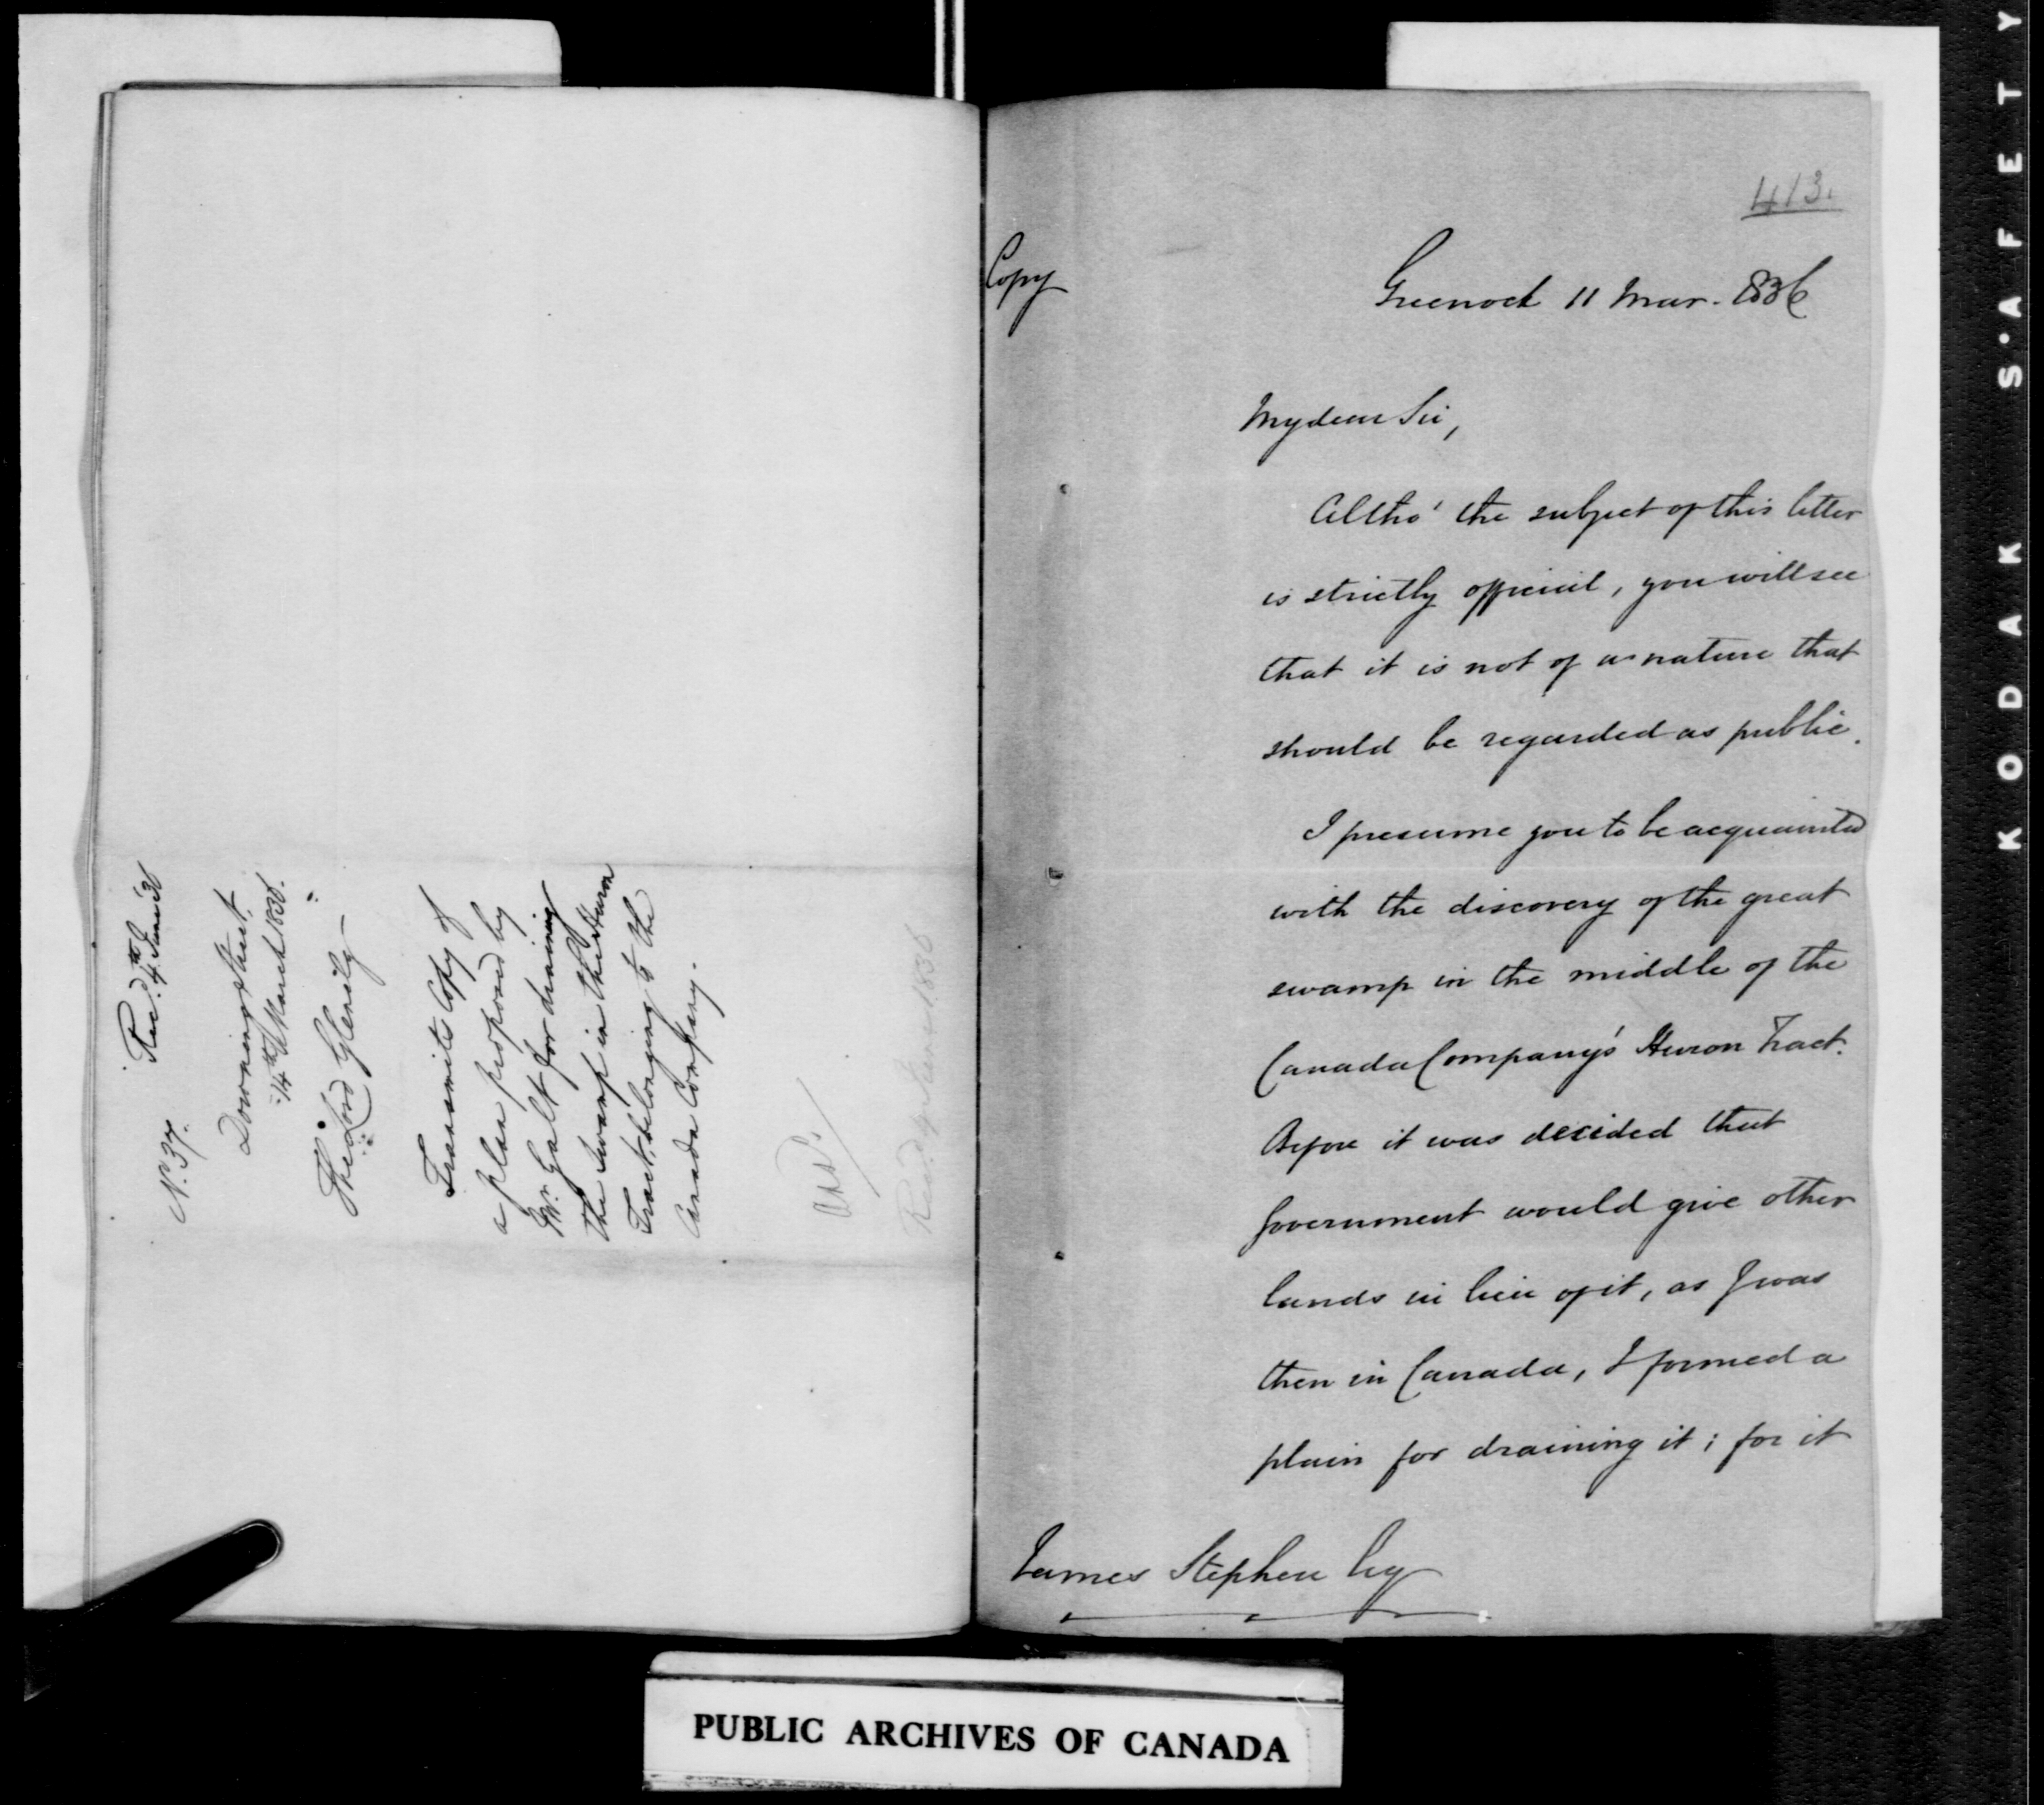 N. 37.
Recd. 4th June '36
Downing Street,
14th March 1836.
The Lord Glenelg
Transmits Copy of
a plan proposed by
Mr. Galt for draining
the Swamp in the Huron
Tract, belonging to the
Canada Company.
Ansd.
413.
Copy
Greenock 11 Mar. 1836
My dear Sir,
Altho' the subject of this letter
is strictly official, you will see
that it is not of a nature that
should be regarded as public.
I presume you to be acquainted
with the discovery of the great
swamp in the middle of the
Canada Company's Huron Tract.
Before it was decided that
Government would give other
lands in lieu of it, as I was
then in Canada, I formed a
plan for draining it; for it
James Stephen Esq
PUBLIC ARCHIVES OF CANADA
KODAK S'AFETY